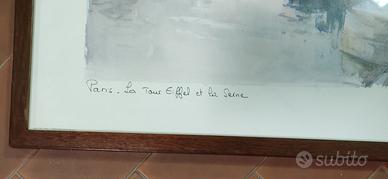 Paris. La Tour Eiffel et la Seine
subito